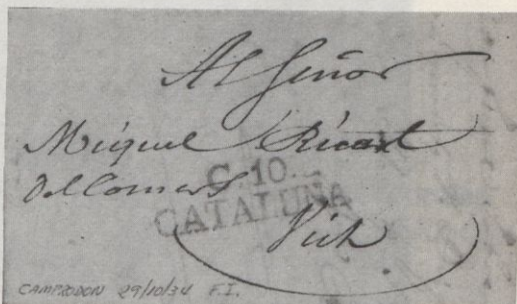 Al Señor
Miguel Ricart
C.10.
Del Comers
CATALUÑA
Vich
CAMPRODON 29/10/34 F.I.